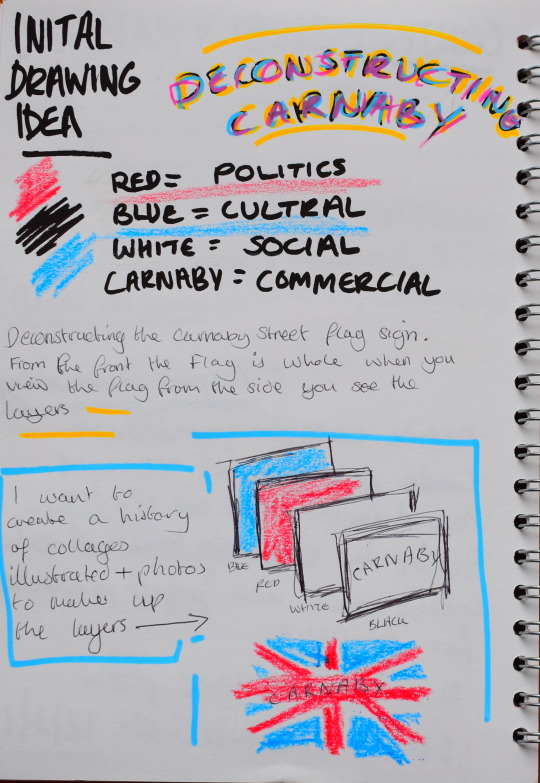 INITAL
DRAWING
IDEA
DECONSTRUCTING
CARNABY
RED = POLITICS
BLUE = CULTRAL
WHITE = SOCIAL
CARNABY = COMMERCIAL
Deconstructing the Carnaby Street flag sign.
From the front the Flag is whole when you
view the flag from the side you see the
layers
I want to
create a history
of collages
illustrated + photos
to makes up
the layers
BLUE
RED
WHITE
CARNABY
BLACK
CARNABY